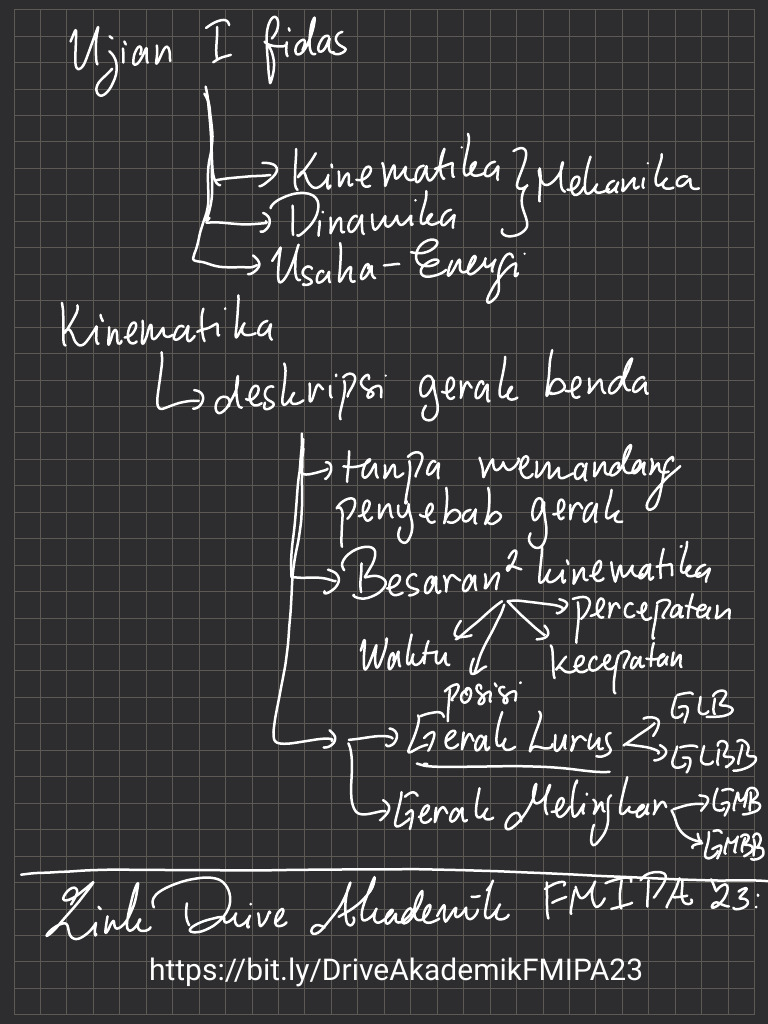 Ujian I fidas
Kinematika
Dinamika
Mekanika
Usaha-Energi
Kinematika
deskripsi gerak benda
tanpa memandang
penyebab gerak
Besaran² kinematika
percepatan
Waktu
kecepatan
posisi
GLB
Gerak Lurus
GLBB
Gerak Melingkar
GMB
GMBB
Link Drive Akademik FMIPA 23:
https://bit.ly/DriveAkademikFMIPA23